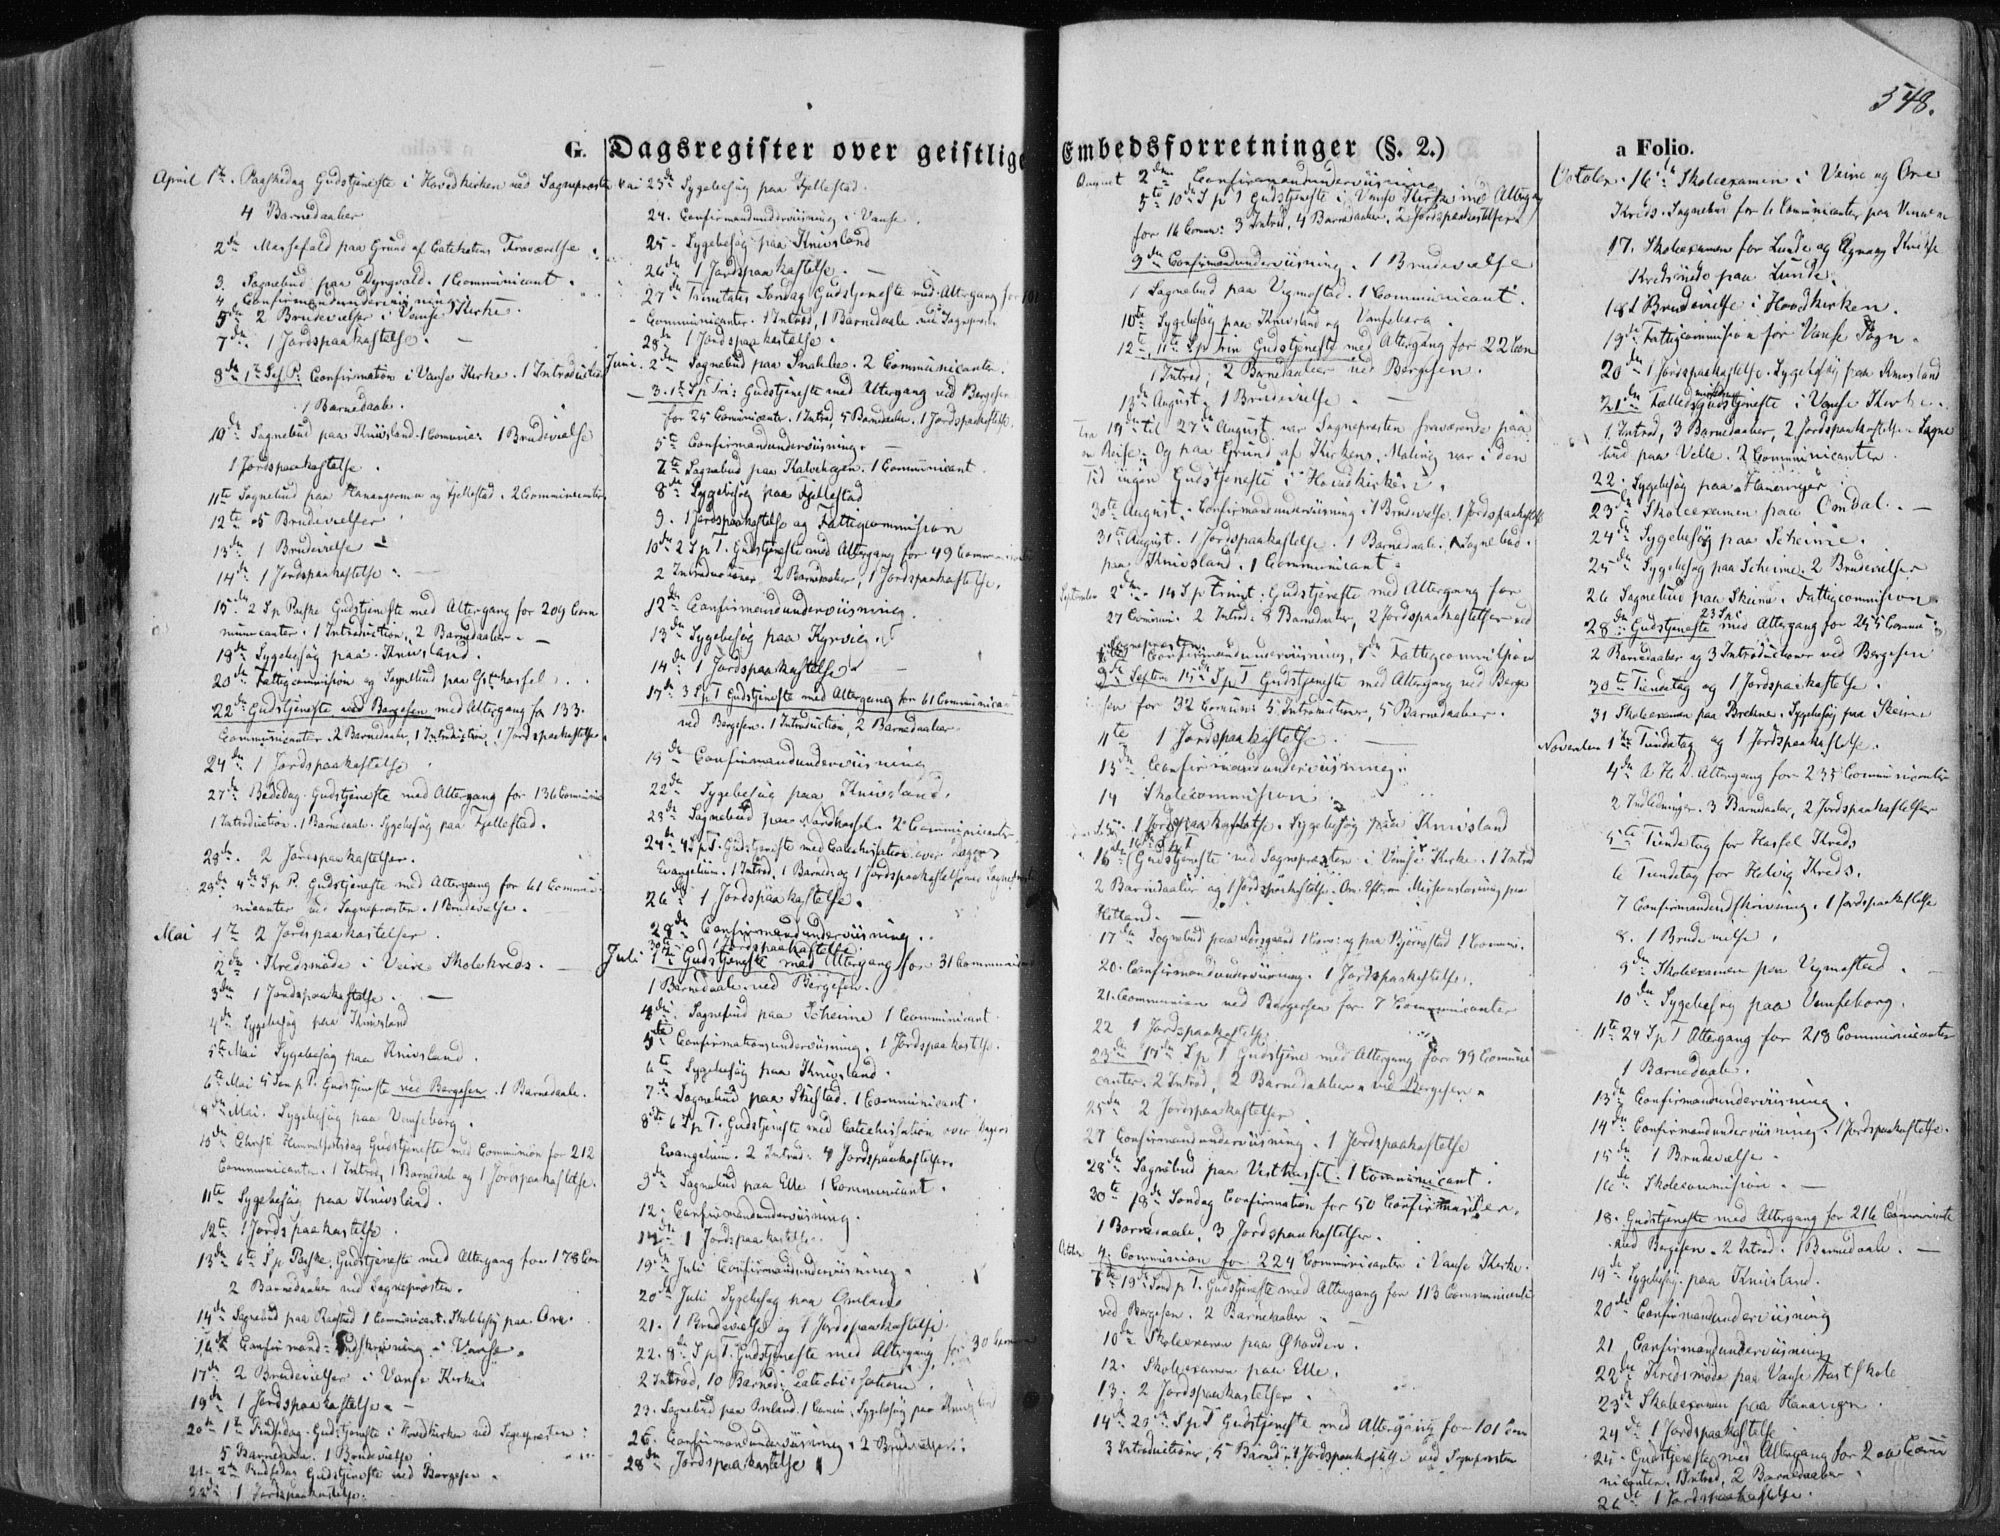 548.
G. Dagsregister over geistlige Embedsforretninger (§. 2.) a Folio.
April 1ste Paaskedag Gudstjeneste i Hovedkirken ved Sognepræsten
4 Barnedaaber
2den Messefald paa Grund af Catechetens Fraværelse
3. Sognebud paa Dyngvold. 1 Communicant.
4 Confirmandunderviisning
5te 2 Brudevielser i Vanse Kirke.
7de 1 Jordspaakastelse.
8de 1ste S. p. P. Confirmation i Vanse Kirke. 1 Introduction
1 Barnedaab.
10de Sognebud paa Kniivsland. 1 Commun: 1 Brudevielse
1 Jordspaakastelse.
11te Sognebud paa og Fjellestad. 2 Communicanter
12te 5 Brudevielser
13de 1 Brudevielse
14de 1 Jordspaakastelse.
15de 2 S p Paaske Gudstjeneste med Altergang for 209 Com
municanter. 1 Introduction, 2 Barnedaaber.
18de Sygebesøg paa Knivsland.
20de Fattigcommission og Sognebud paa
22de Gudstjeneste ved Bergesen med Altergang for 133
Communicanter. 2 Barnedaaber, 1 Introduction, 1 Jordspaakastelse
24de 1 Jordspaakastelse
27de Bededag. Gudstjeneste med Altergang for 136 Communi
1 Introduction. 1 Barnedaab. Sygebesøg paa Fjellestad.
28de 2 Jordspaakastelser.
29de 4de S p P. Gudstjeneste med Altergang for 61 Commu
nicanter ved Sognepræsten. 1 Brudevielse.
Mai 1ste 2 Jordspaakastelser.
2den Kredsmøde i Veire Skolekreds.
3die 1 Jordspaakastelse.
4de Sygebesøg paa Knivsland
5te Mai Sygebesøg paa Knivsland.
6te Mai 5 Søn p P. Gudstjeneste ved Bergesen. 1 Barnedaab.
8de Mai. Sygebesøg paa Vanseborg.
10de Christi Himmelfartsdag Gudstjeneste med Communion for 212
Communicanter. 1 Introd, 1 Barnedaab og 1 Jordspaakastelse.
11te Sygebesøg paa Knivsland.
12te 1 Jordspaakastelse.
13de 6te S p Paaske. Gudstjeneste med Altergang for 178 Com
2 Barnedaaber ved Sognepræsten.
14de Sognebud paa 1 Communicant. Skolebesøg paa Ore.
16de Confirmand-Indskrivning i Vanse.
17de 2 Brudevielser i Vanse Kirke
19de 1 Jordspaakastelse.
20de 1ste Pindsedag. Gudstjeneste i Hovedkirken ved Sognepræsten:
5 Barnedaab. 1 Brudevielse
21. 2den Pindsedag Gudstjeneste ved Bergesen.
22de 1 Jordspaakastelse.
Mai 23de Sygebesøg paa Fjellestad.
24. Confirmandunderviisning i Vanse.
25. Sygebesøg paa Knivsland
26de 1 Jordspaakastelse.
27de Trinitatis Søndag Gudstjeneste med Altergang for 101
Communicanter. 1 Introd, 1 Barnedaab ved Sognepræst.
28de 1 Jordspaakastelse.
Juni. 2den Sognebud paa 2 Communicanter.
3. 1ste S p Tri: Gudstjeneste med Altergang ved Bergesen
for 25 Communicanter. 1 Introd, 5 Barnedaaber. 1 Jordspaakastelse.
5te Confirmandunderviisning.
7de Sognebud paa 1 Communicant.
8de Sygebesøg paa Fjellestad
9. 1 Jordspaakastelse og Fattigcommission
10de 2 S p T. Gudstjeneste med Altergang for 49 Communicanter
2 Introductioner, 2 Barnedaaber, 1 Jordspaakastelse.
12te Confirmandunderviisning.
13de Sygebesøg paa
14de 1 Jordspaakastelse
17de 3 S p T Gudstjeneste med Altergang for 61 Communican
ved Bergesen. 1 Introduction, 2 Barnedaaber
19de Confirmandunderviisning
22de Sygebesøg paa Knivsland.
23de Sognebud paa Nordhassel. 2 Communicanter
24de 4 S p T. Gudstjeneste med Catechisation over Dagens
Evangelium. 1 Introd, 1 Barned. og 1 Jordspaakastelse ved Sognepræst
26de 1 Jordspaakastelse.
28de Confirmandunderviisning.
30te 1 Jordspaakastelse
Juli 1ste Gudstjeneste med Altergang for 31 Communican
1 Barnedaab ved Bergesen.
4de Sognebud paa Scheime 1 Communicant
5te Confirmationsunderviisning. 1 Jordspaakastelse.
6te Sygebesøg paa Knivsland.
7de Sognebud paa 1 Communicant.
8de 6 S p T. Gudstjeneste med Catechisation over Dagens
Evangelium. 2 Introd: 4 Jordspaakastelser.
9de Sognebud paa Elle 1 Communicant.
12. Confirmandunderviisning.
14de 1 Jordspaakastelse.
19de Juli Confirmandunderviisning.
20de Juli Sygebesøg paa Omland
21. 1 Brudevielse og 1 Jordspaakastelse.
22. 8de S p T. Gudstjeneste med Altergang for 30 Commun
2 Introd, 10 Barned: Catechisation.
23. Sognebud paa 1 Commun: Sygebesøg paa Knivsland
26. Confirmandunderviisning. 2 Brudevielser.
28de Jordspaakastelse
August 2den Confirmandunderviisning
5te 10de S p T Gudstjeneste i Vanse Kirke med Altergang
for 16 Commun: 3 Introd, 4 Barnedaaber, 2 Jordspaakastelser
9de Confirmandunderviisning. 1 Brudevielse
1 Sognebud paa Vigmostad. 1 Communicant.
10de Sygebesøg paa Knivsland og Vanseborg.
12te 11te S p Trin Gudstjeneste med Altergang for 22 Com
1 Introd, 2 Barnedaaber ved Bergesen.
13de August. 1 Brudevielse.
Fra 19de til 27de August var Sognepræsten fraværende paa
en Reise. Og paa Grund af Kirkens Maling var i den
Tid ingen Gudstjeneste i Hovedkirken.
30te August. Confirmandunderviisning. 1 Brudevielse. 1 Jordspaakastelse
31te August. 1 Jordspaakastelse. 1 Barnedaab. 1 Sognebud
paa Knivsland. 1 Communicant.
September 2den 14 S p Trinit: Gudstjeneste med Altergang for
27 Commun. 2 Introd: 8 Barnedaaber, 2 Jordspaakastelser ved
Sognepræsten
6te Confirmandunderviisning, 8de Fattigcommission
9de Septbr 15de S p T Gudstjeneste med Altergang ved Berge
sen for 32 Commun: 5 Introductioner, 5 Barnedaaber.
11te 1 Jordspaakastelse.
13de Confirmandunderviisning.
14 Skolecommission.
15de 1 Jordspaakastelse. Sygebesøg paa Knivsland
16de 16de S p T Gudstjeneste ved Sognepræsten i Vanse Kirke. 1 Introd
2 Barnedaaber og 1 Jordspaakastelse. Om Efterm Missionslæsning paa
Hetland.
17de Sognebud paa 1 Com: og paa Bjørnestad 1 Commun.
20. Confirmandunderviisning. 1 Jordspaakastelse.
21. Communion ved Bergesen for 7 Communicanter
22 1 Jordspaakastelse.
23de 17de S p T Gudstjene med Altergang for 99 Communi
canter. 2 Introd, 2 Barnedaaber ved Bergesen.
25de 2 Jordspaakastelser
27 Confirmandunderviisning. 1 Jordspaakastelse
28de Sognebud paa Vesthassel. 1 Communicant.
30te 18de Søndag Confirmation for 50 Confirmander.
1 Barnedaab, 3 Jordspaakastelser.
Octbr 4. Communion for 224 Communicanter i Vanse Kirke.
7de 19de Sønd p T. Gudstjeneste med Altergang for 113 Communicanter
ved Bergesen. 2 Barnedaaber
10de Skoleexamen paa
12. Skoleexamen paa Elle.
13. 2 Jordspaakastelser.
14de 20de S p T Gudstjeneste med Altergang for 101 Com
3 Introductioner, 5 Barned. 1 Jordspaakastelse ved Sognepræsten
October 16de Skoleexamen i Veire og Ore
Kreds. Sognebud for 6 Communicanter paa
17. Skoleexamen for Lunde og Kreds
Kredsmøde paa Lunde.
18. 1 Brudevielse i Hovedkirken.
19de Fattigcommission for Vanse Sogn.
20de 1 Jordspaakastelse. Sygebesøg paa Knivsland
21de Fælleds Gudstjeneste i Vanse Kirke.
1 Introd, 3 Barnedaaber, 2 Jordspaakastelser. Sogne
bud paa Velle. 2 Communicanter.
22. Sygebesøg paa
23de Skoleexamen paa Omdal.
24de Sygebesøg paa Scheime.
25de Sygebesøg paa Scheime. 2 Brudevielser
26 Sognebud paa Skeime. Fattigcommission
23 S p
28de Gudstjeneste med Altergang for 255 Commu
2 Barnedaaber og 3 Introductioner ved Bergesen
30te Tiendetag og 1 Jordspaakastelse.
31 Skoleexamen paa Brekne. Sygebesøg paa Skeime
November 1ste Tiendetag og 1 Jordspaakastelse.
4de A. H. D. Altergang for 235 Communicanter
2 Indledninger. 3 Barnedaaber, 2 Jordspaakastelser
5te Tiendetag for Hassel Kreds
6 Tiendetag for Helvig Kreds.
7 Confirmandindskrivning. 1 Jordspaakastelse
8. 1 Brudevielse.
9de Skoleexamen paa Vigmostad.
10de Sygebesøg paa Vanseborg.
11te 24 S p T Altergang for 218 Communicanter
1 Barnedaab.
13de Confirmandunderviisning.
14de Confirmandunderviisning. 1 Jordspaakastelse.
15de 1 Brudevielse.
16de Skolecommission.
18. Gudstjeneste med Altergang for 216 Communicanter
ved Bergesen. 2 Introd. 1 Barnedaab.
19de Sygebesøg paa Knivsland.
20de Confirmandunderviisning
21 Confirmandunderviisning
22de Kredsmøde paa Vanse Fast Skole
23de Skoleexamen paa
24de 1 Jordspaakastelse
25. Gudstjeneste med Altergang for 200 Commu
nicanter. 1 Introd, 2 Barnedaaber.
26de 1 Jordspaakastelse.